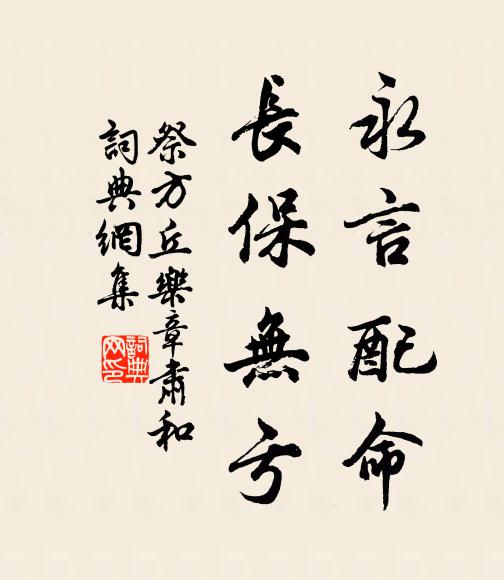 永言配命
長保無亏
祭方丘樂章肅和
詞典網集
詞典網印